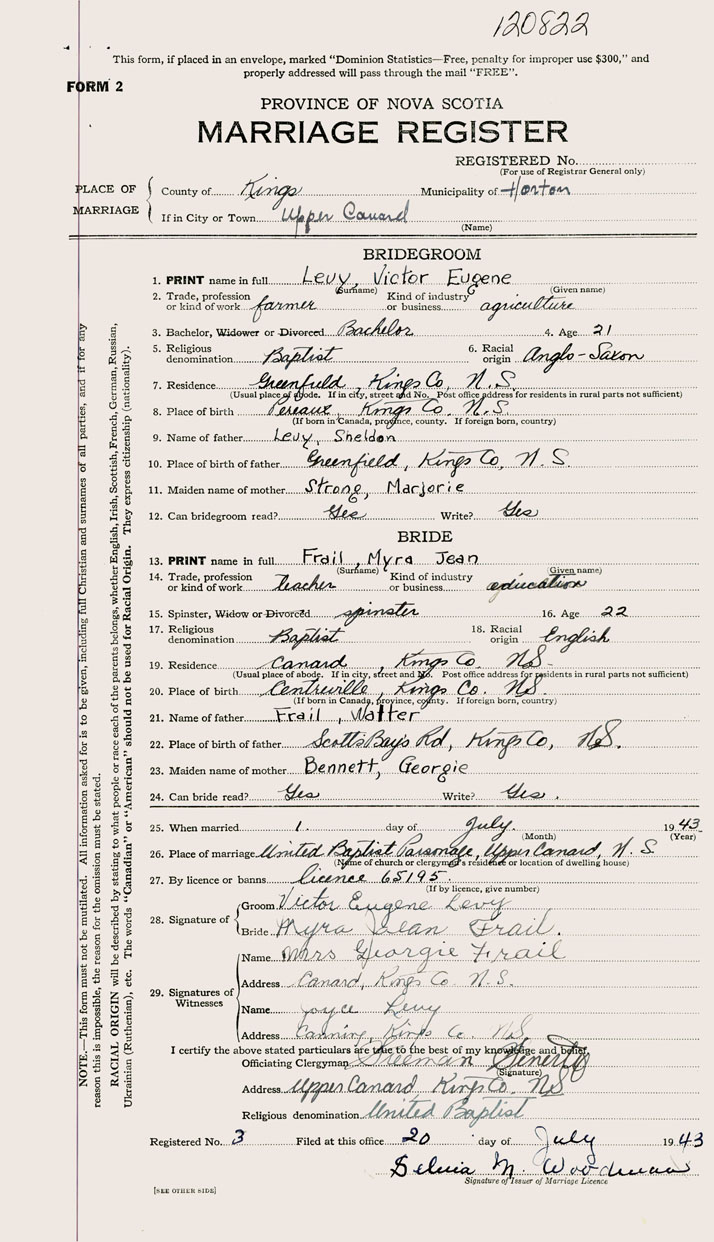 120822
This form, if placed in an envelope, marked "Dominion Statistics—Free, penalty for improper use $300," and
properly addressed will pass through the mail "FREE".
FORM 2
PROVINCE OF NOVA SCOTIA
MARRIAGE REGISTER
REGISTERED No.
(For use of Registrar General only)
PLACE OF MARRIAGE
County of Kings Municipality of Horton
If in City or Town Upper Canard
(Name)
BRIDEGROOM
1. PRINT name in full Levy, Victor Eugene
(Surname) (Given name)
2. Trade, profession or kind of work farmer Kind of industry or business agriculture
3. Bachelor, Widower or Divorced Bachelor 4. Age 21
5. Religious denomination Baptist 6. Racial origin Anglo-Saxon
7. Residence Greenfield, Kings Co, N.S.
(Usual place of abode. If in city, street and No. Post office address for residents in rural parts not sufficient)
8. Place of birth Pereaux, Kings Co. N.S.
(If born in Canada, province, county. If foreign born, country)
9. Name of father Levy, Sheldon
10. Place of birth of father Greenfield, Kings Co, N.S.
11. Maiden name of mother Strong, Marjorie
12. Can bridegroom read? Yes Write? Yes
BRIDE
13. PRINT name in full Frail, Myra Jean
(Surname) (Given name)
14. Trade, profession or kind of work teacher Kind of industry or business education
15. Spinster, Widow or Divorced spinster 16. Age 22
17. Religious denomination Baptist 18. Racial origin English
19. Residence Canard, Kings Co. NS-
(Usual place of abode. If in city, street and No. Post office address for residents in rural parts not sufficient)
20. Place of birth Centreville, Kings Co. NS.
(If born in Canada, province, county. If foreign born, country)
21. Name of father Frail, Walter
22. Place of birth of father Scotts Bay Rd, Kings Co, NS.
23. Maiden name of mother Bennett, Georgie
24. Can bride read? Yes Write? Yes.
25. When married 1. day of July. 1943
(Month) (Year)
26. Place of marriage United Baptist Parsonage, Upper Canard, N.S
(Name of church or clergyman's residence or location of dwelling house)
27. By licence or banns licence 65195.
(If by licence, give number)
28. Signature of
Groom Victor Eugene Levy
Bride Myra Jean Frail.
29. Signatures of Witnesses
Name Mrs Georgie Frail
Address Canard, Kings Co. N.S.
Name Joyce Levy
Address Canning, Kings Co. NS
I certify the above stated particulars are true to the best of my knowledge and belief.
Officiating Clergyman Freeman Fenerty
(Signature)
Address Upper Canard, Kings Co. NS
Religious denomination United Baptist
Registered No. 3 Filed at this office 20 day of July 1943
Selvia M. Woodman
Signature of Issuer of Marriage Licence
[SEE OTHER SIDE]
NOTE.—This form must not be mutilated. All information asked for is to be given, including full Christian and surnames of all parties, and if for any
reason this is impossible, the reason for the omission must be stated.
RACIAL ORIGIN will be described by stating to what people or race each of the parents belongs, whether English, Irish, Scottish, French, German, Russian,
Ukrainian (Ruthenian), etc. The words "Canadian" or "American" should not be used for Racial Origin. They express citizenship (nationality).